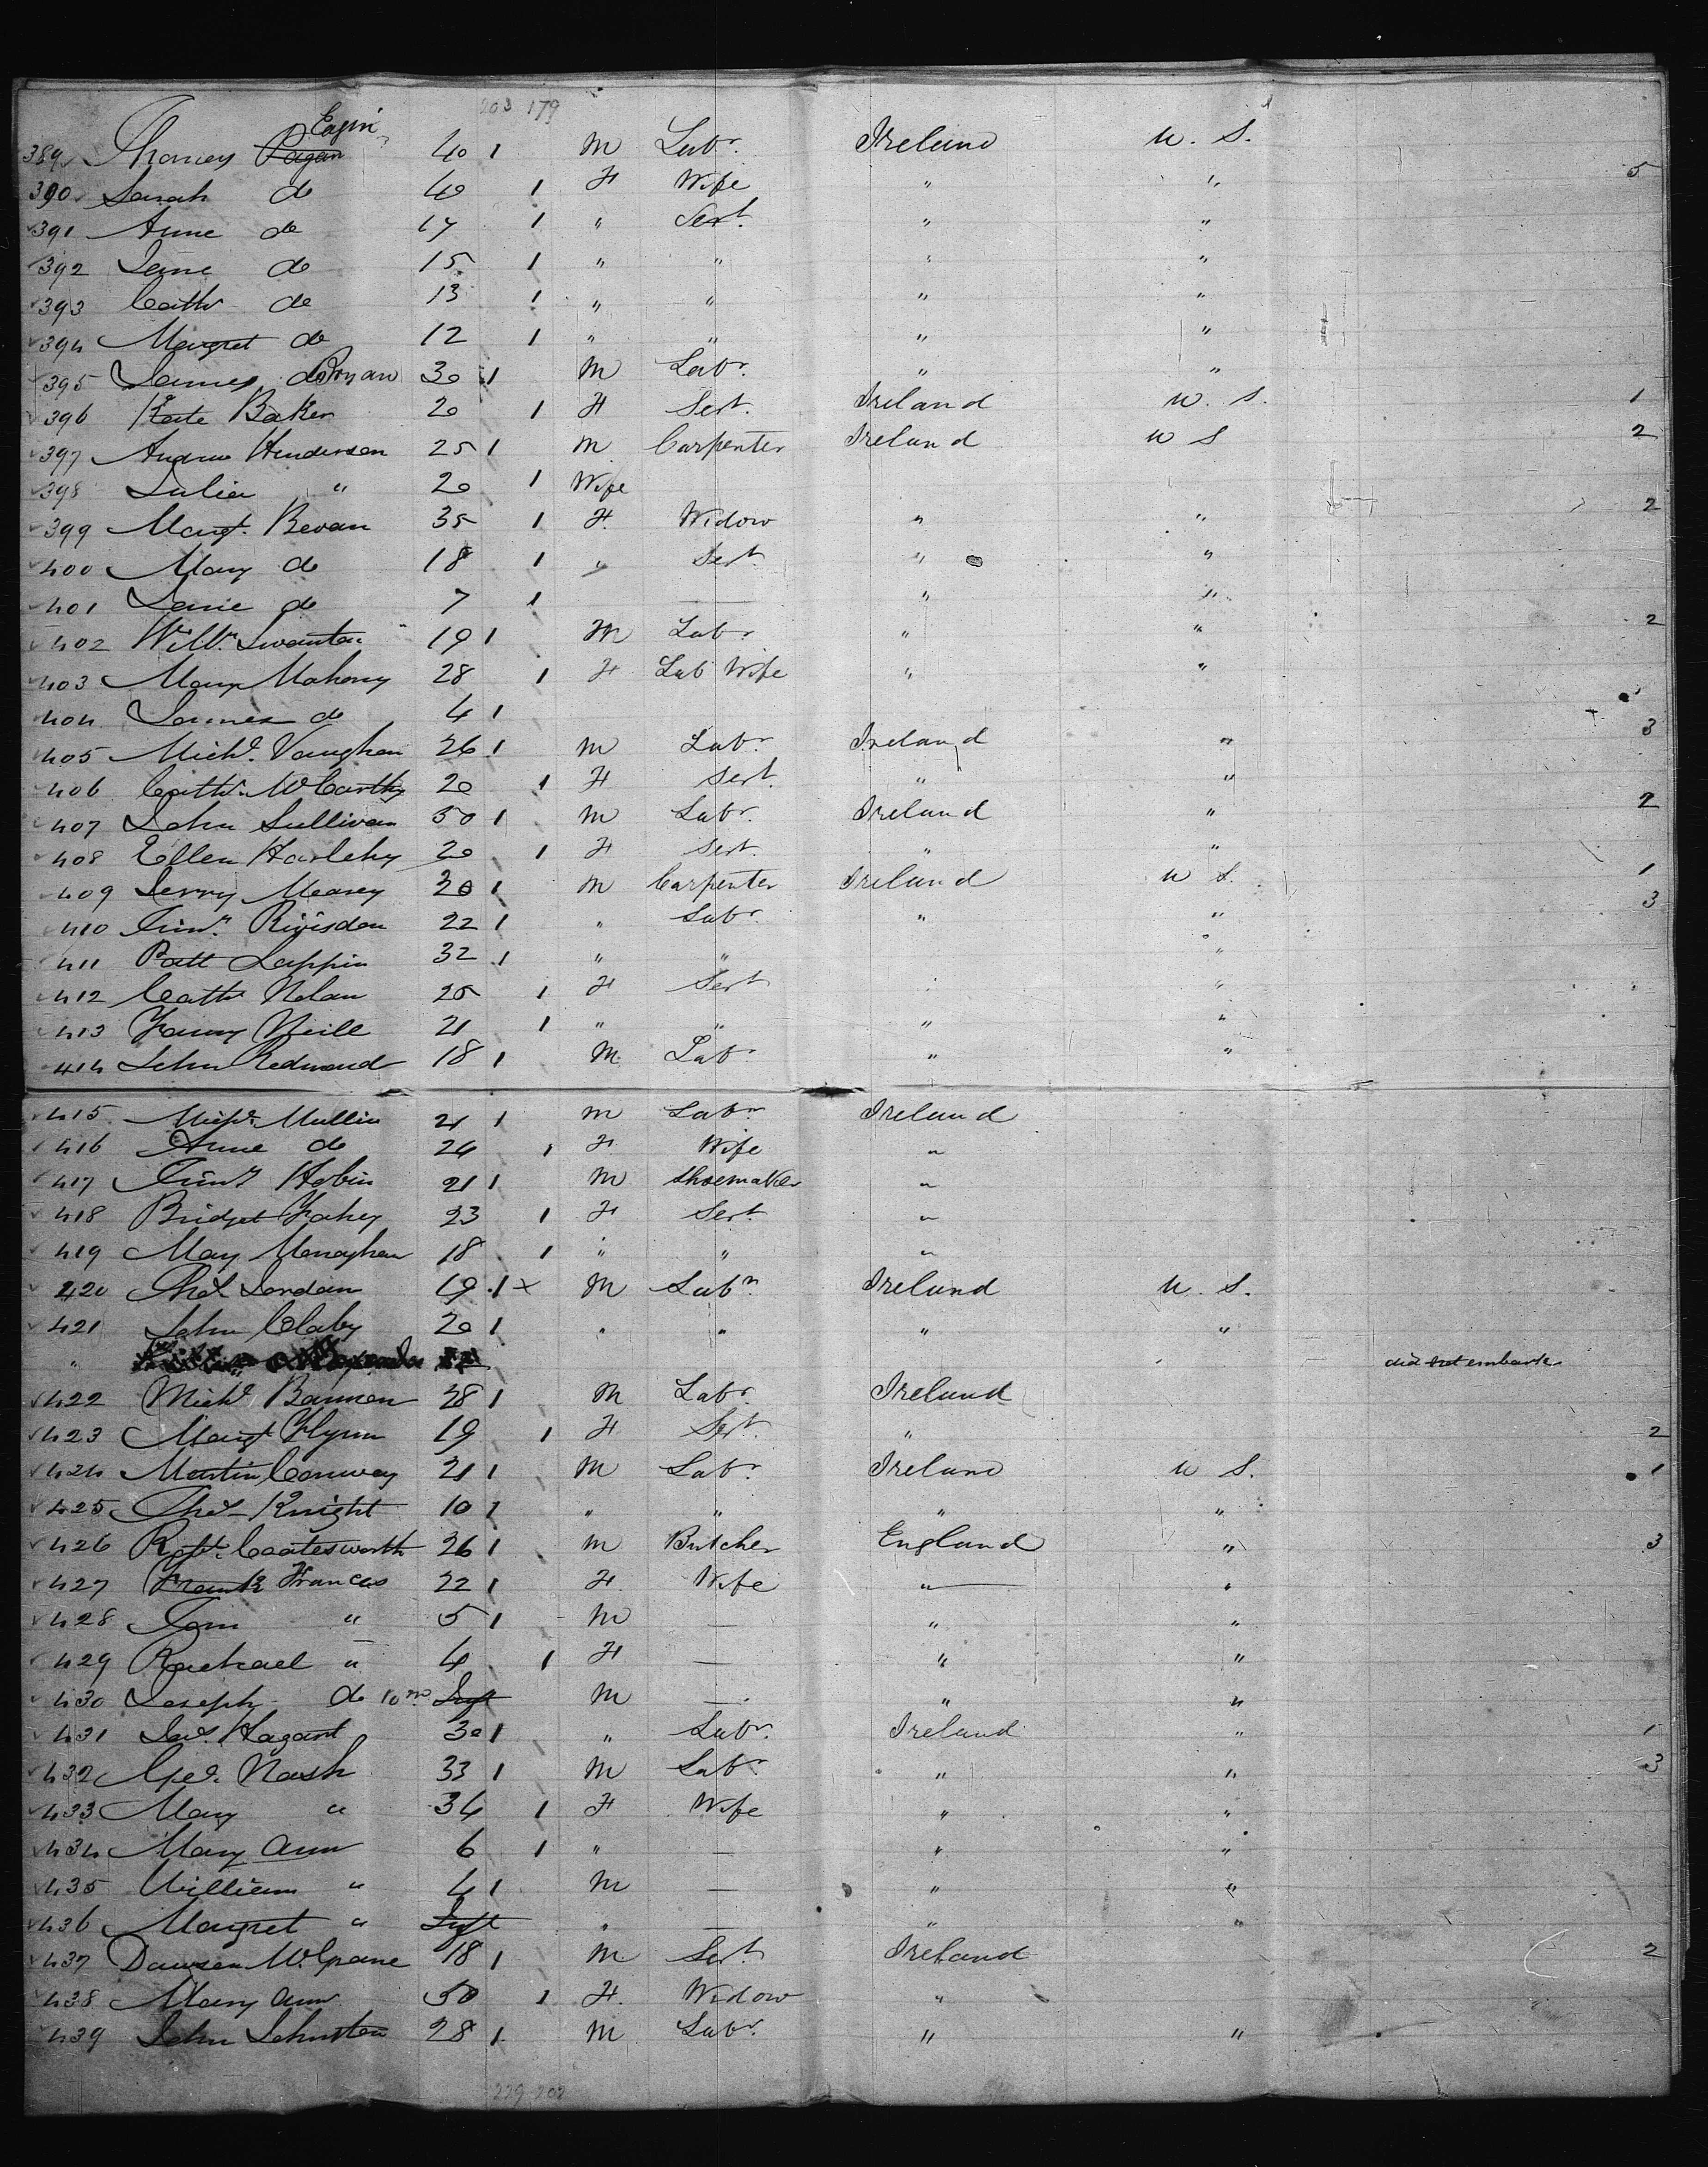 203 179
Eagin
389 Thomas Pagan 40 1 M Labr. Ireland U. S.
5
390 Sarah do 40 1 F Wife " "
391 Anne do 17 1 " Sert. " "
392 Jane do 15 1 " " " "
393 Cathr do 13 1 " " " "
394 Margret do 12 1 " " " "
395 James do Bryan 30 1 M Labr. " "
396 Kate Baker 20 1 F Sert. Ireland U. S. 1
397 Andrew Henderson 25 1 M Carpenter Ireland U S 2
398 Julia " 20 1 Wife
399 Margt. Bevan 35 1 F. Widow " " 2
400 Mary do 18 1 " Sert " "
401 Janie do 7 1 — " "
402 Willm. Swanton 19 1 M Labr " " 2
403 Mary Mahony 28 1 F Lab Wife " "
404 James do 4 1
405 Michl. Vaughan 26 1 M Labr. Ireland " 3
406 Cathr. McCarthy 20 1 F Sert. " "
407 John Sullivan 50 1 M Labr. Ireland " 2
408 Ellen Harlehy 20 1 F Sert. " "
409 Jerry Meaney 30 1 M Carpenter Ireland U S. 1
410 Timy. Rivisdon 22 1 " Labr. " " 3
411 Patt Lappin 32 1 " " "
412 Cathr Nolan 25 1 F Sert "
413 Fanny Neill 21 1 " " " "
414 John Redmond 18 1 M. Labr " "
415 Michl. Mullin 21 1 M Labr Ireland
416 Anne do 24 1 F Wife "
417 Timy Hobin 21 1 M Shoemaker "
418 Bridget Fahey 23 1 F Sert. "
419 May Monaghan 18 1 " " "
420 Thos Jordan 19 1 x M Labr. Ireland U. S.
421 John Claby 20 1 " " " "
" did not embark
422 Michl Bannon 28 1 M Labr. Ireland
423 Margt Flynn 19 1 F Sert. " 2
424 Martin Conway 21 1 M Labr. Ireland U S. 1
425 Thos Knight 10 1 " " " "
426 Robt. Coatesworth 26 1 M Butcher England " 3
427 Frank Frances 22 1 F. Wife " "
428 Tom " 5 1 M — " "
429 Rachael " 4 1 F — " "
430 Joseph do 10 m Inft M — " "
431 Jas. Hagart 30 1 " Labr. Ireland " 1
432 Geo. Nash 33 1 M Labr. " " 3
433 Mary " 34 1 F Wife " "
434 Mary Ann 6 1 " — " "
435 William " 4 1 M — " "
436 Margret " Inft " — " "
437 Dawson McGrane 18 1 M Sert. Ireland 2
438 Mary Ann 50 1 F. Widow "
439 John Johnston 28 1 M Labr. " "
229 202